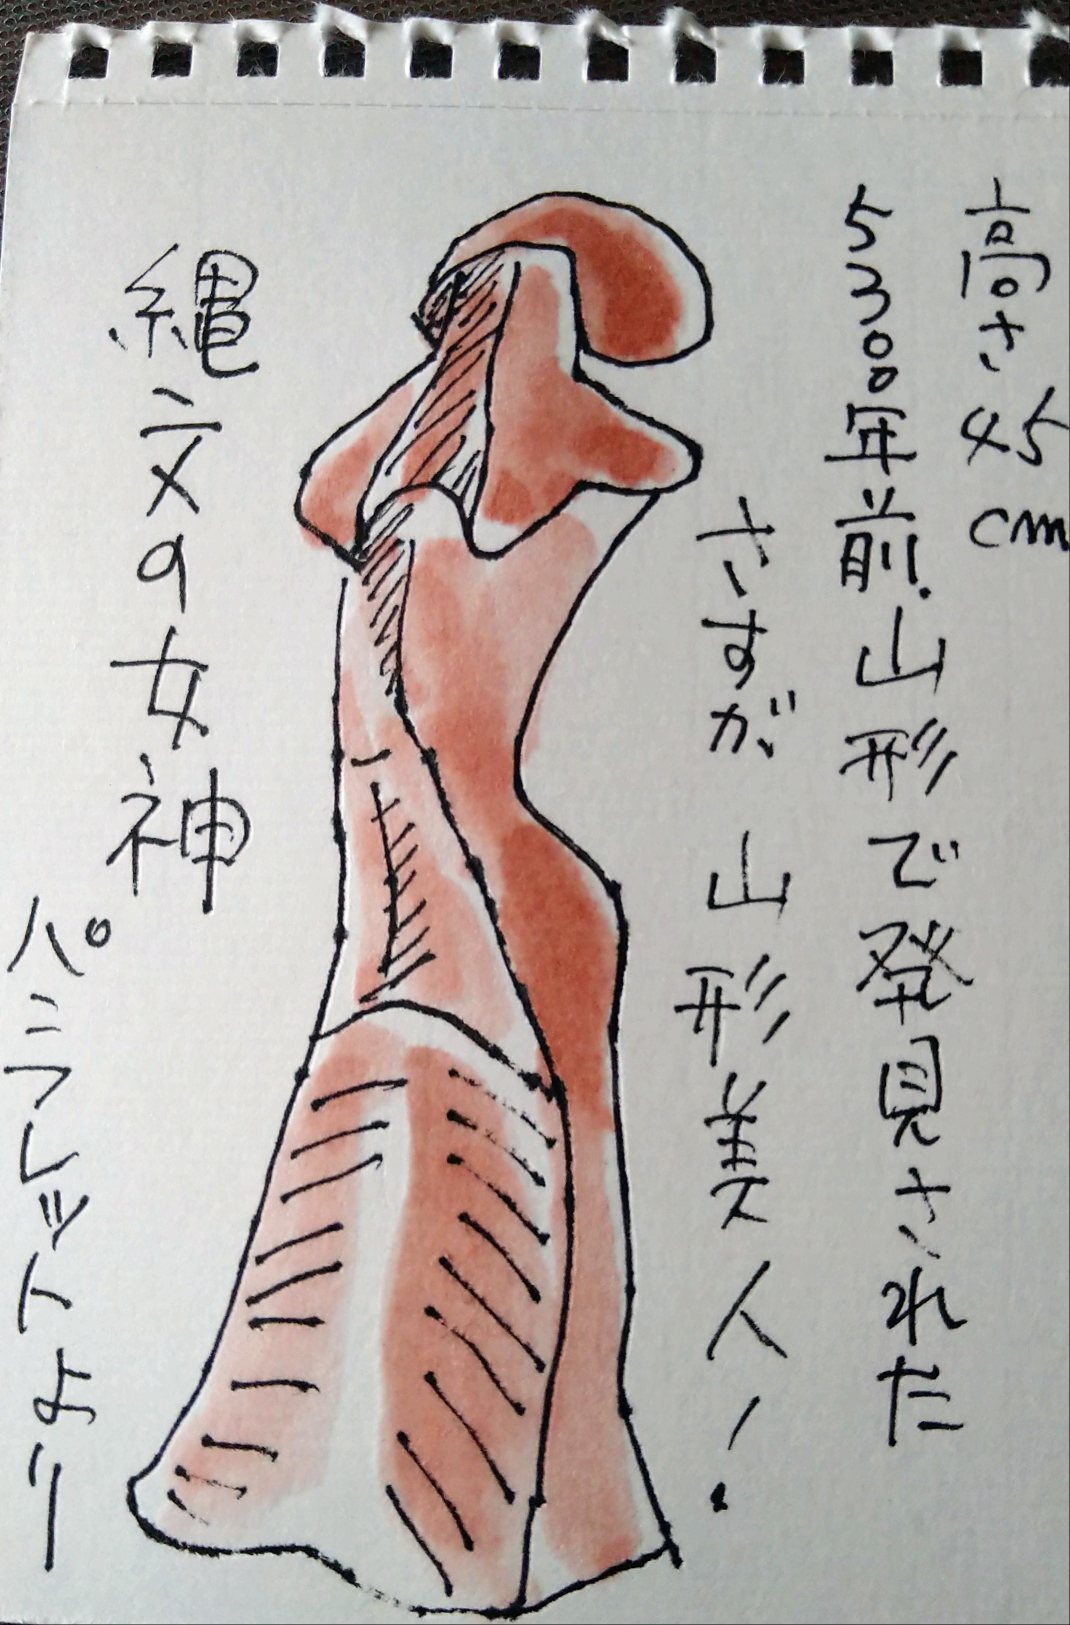 高さ45cm
5300年前.山形で発見された
さすが 山形美人!
縄文の女神
パンフレットより